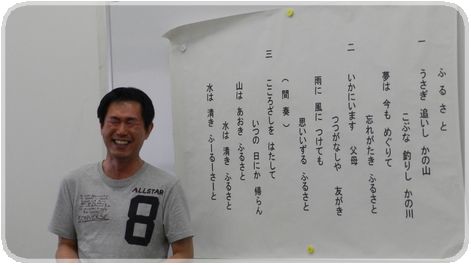 ふるさと
一 うさぎ 追いし かの山
こぶな 釣りし かの川
夢は 今も めぐりて
忘れがたき ふるさと
二 いかにいます 父母
つつがなしや 友がき
雨に 風に つけても
思いいずる ふるさと
（間奏）
三 こころざしを はたして
いつの 日にか 帰らん
山は あおき ふるさと
水は 清き ふるさと
水は 清き ふーるーさーと
ALLSTAR
8